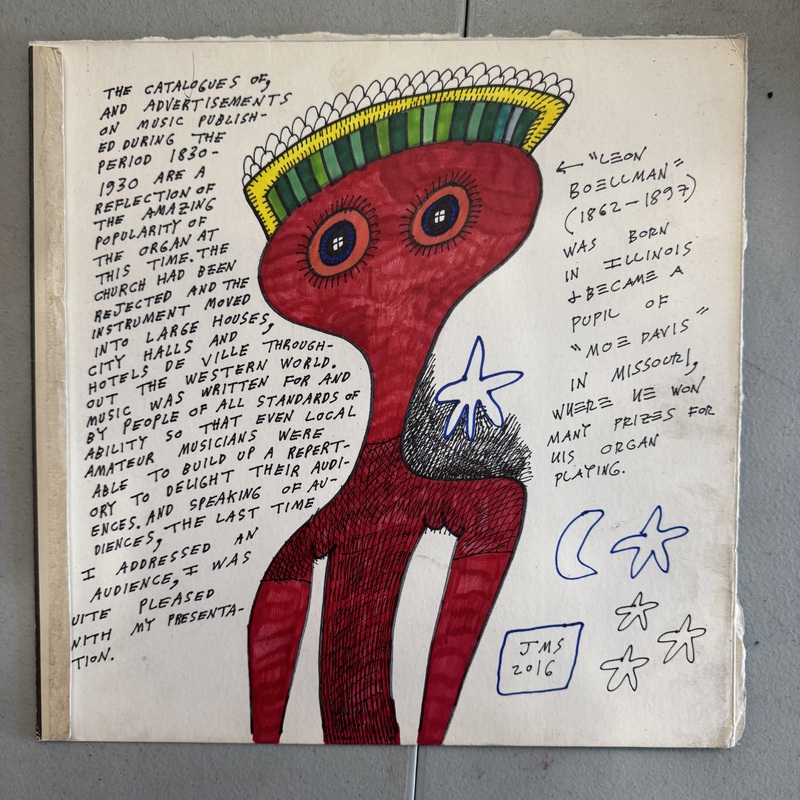 THE CATALOGUES OF,
AND ADVERTISEMENTS
ON MUSIC PUBLISH-
ED DURING THE
PERIOD 1830-
1930 ARE A
REFLECTION OF
THE AMAZING
POPULARITY OF
THE ORGAN AT
THIS TIME. THE
CHURCH HAD BEEN
REJECTED AND THE
INSTRUMENT MOVED
INTO LARGE HOUSES,
CITY HALLS AND
HOTELS DE VILLE THROUGH-
OUT THE WESTERN WORLD.
MUSIC WAS WRITTEN FOR AND
BY PEOPLE OF ALL STANDARDS OF
ABILITY SO THAT EVEN LOCAL
AMATEUR MUSICIANS WERE
ABLE TO BUILD UP A REPERT-
ORY TO DELIGHT THEIR AUDI-
ENCES. AND SPEAKING OF AU-
DIENCES, THE LAST TIME
I ADDRESSED AN
AUDIENCE, I WAS
UITE PLEASED
WITH MY PRESENTA-
TION.
← "LEON
BOELLMAN"
(1862-1897)
WAS BORN
IN ILLINOIS
& BECAME A
PUPIL OF
"MOE DAVIS"
IN MISSOURI,
WHERE HE WON
MANY PRIZES FOR
HIS ORGAN
PLAYING.
JMS
2016